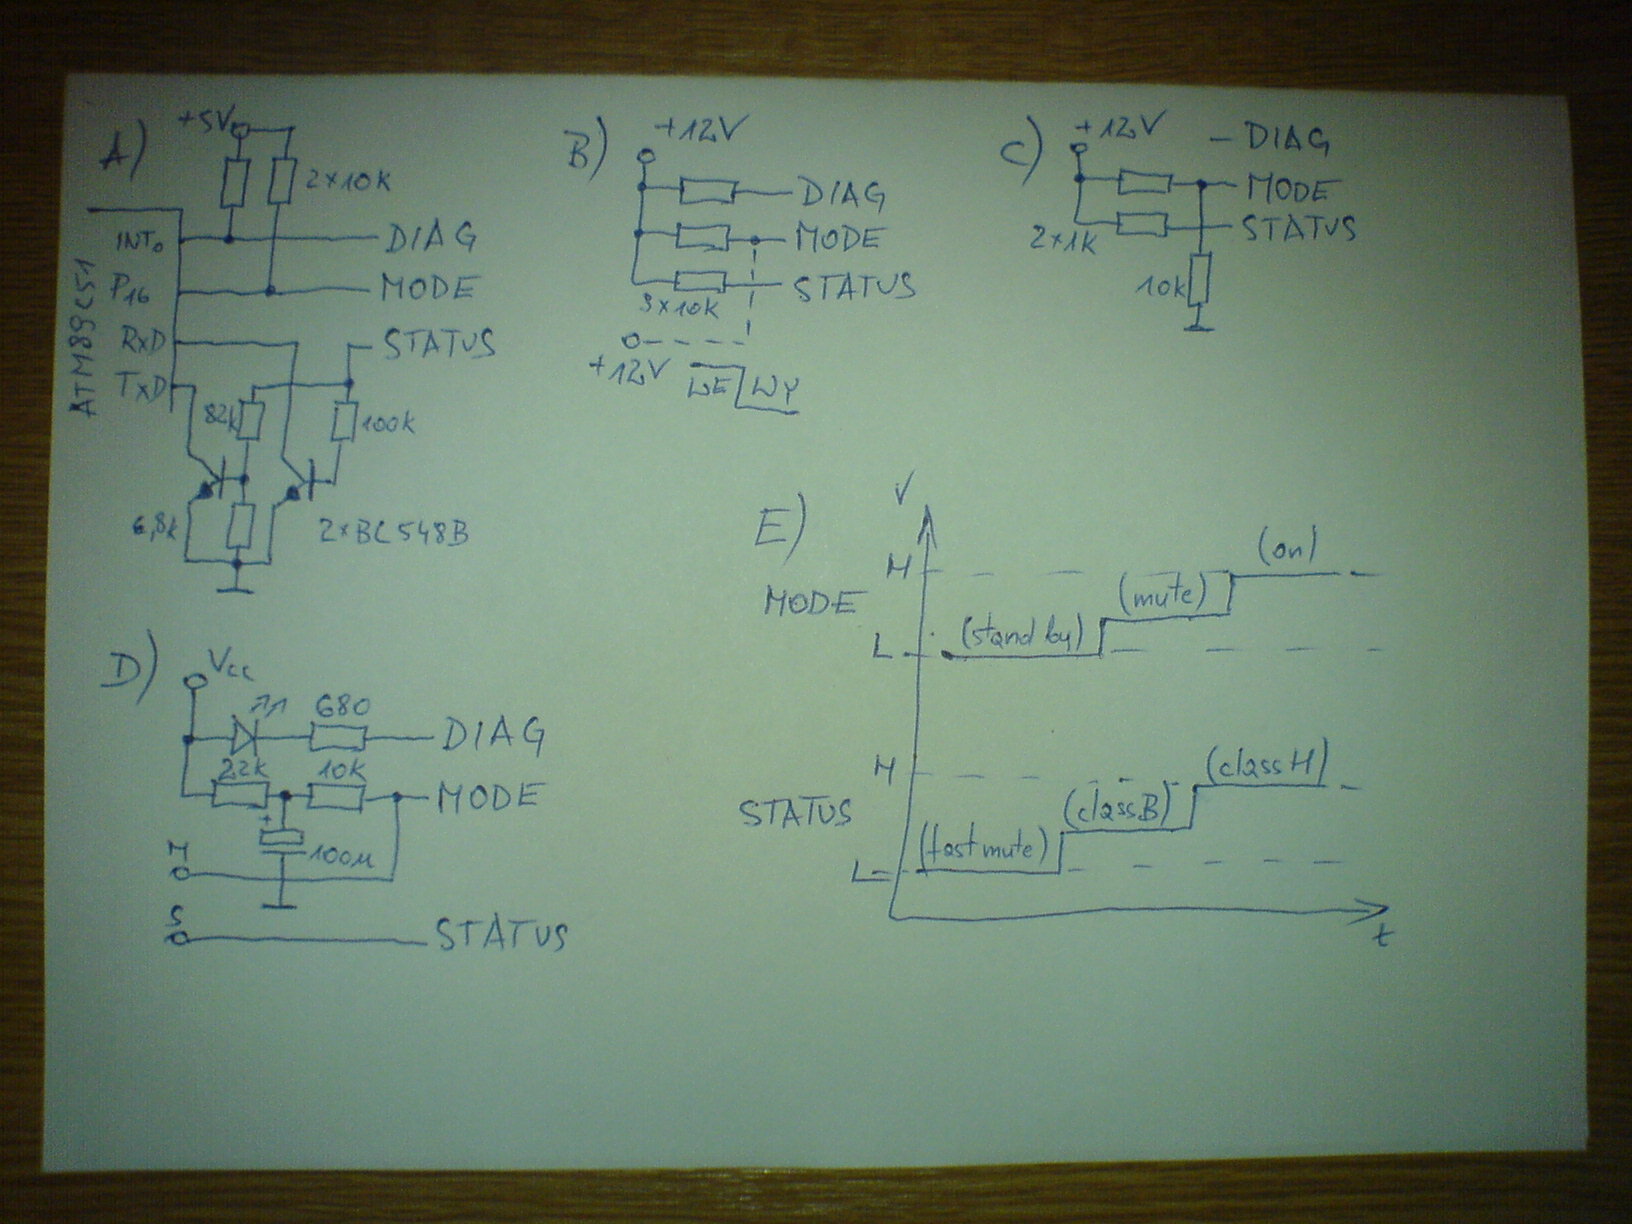 A)
+5V
2×10K
INT0
DIAG
P16
MODE
RxD
STATUS
TxD
ATM89C51
82k
100K
6,8k
2×BC548B
B)
+12V
DIAG
MODE
STATUS
3×10K
+12V
WE WY
C)
+12V
- DIAG
MODE
STATUS
2×1K
10k
D)
Vcc
680
DIAG
22k
10k
MODE
+
100µ
M
S
STATUS
E)
V
H
(on)
MODE
(mute)
(stand by)
L
H
(class H)
STATUS
(class B)
(fast mute)
L
t